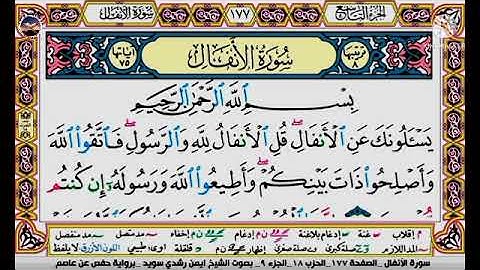 سورة الأنفال ١٧٧ الجزء التاسع
ترتيبها ٨ سُورَةُ الأَنفَال آياتها ٧٥
بِسْمِ ٱللَّهِ ٱلرَّحْمَٰنِ ٱلرَّحِيمِ
يَسْـَٔلُونَكَ عَنِ ٱلْأَنفَالِ ۖ قُلِ ٱلْأَنفَالُ لِلَّهِ وَٱلرَّسُولِ ۖ فَٱتَّقُوا۟ ٱللَّهَ
وَأَصْلِحُوا۟ ذَاتَ بَيْنِكُمْ ۖ وَأَطِيعُوا۟ ٱللَّهَ وَرَسُولَهُۥٓ إِن كُنتُم
م إقلاب ـّ غنة إدغام بلاغنة إدغام إخفاء مد متصل مد منفصل
المد اللازم صلة كبرى صلة صغرى إخفاء شفوي قلقلة اللون الأزرق لا يلفظ
سورة الأنفال _ الصفحة ١٧٧ _ الحزب ١٨ _ الجزء ٩ _ بصوت الشيخ أيمن رشدي سويد _ برواية حفص عن عاصم